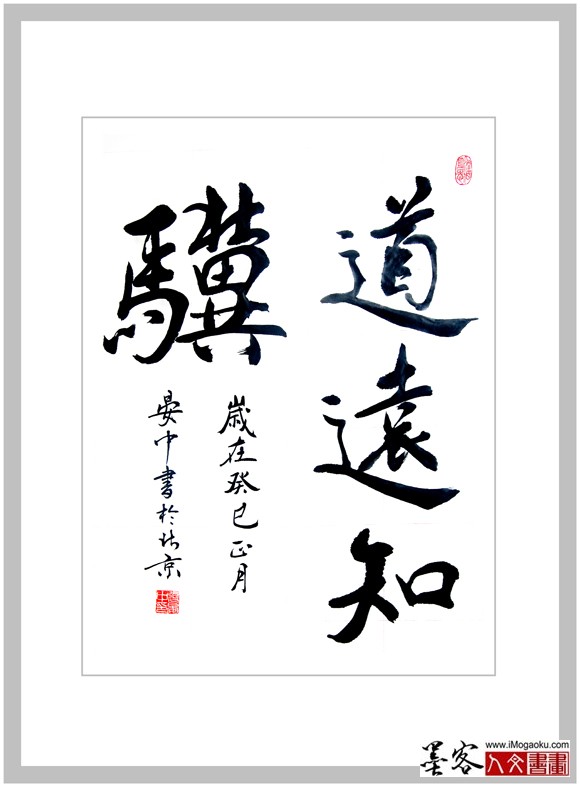 道遠知
驥
歲在癸巳正月
晏中書於北京
墨客
www.iMogaoku.com
人文書畫